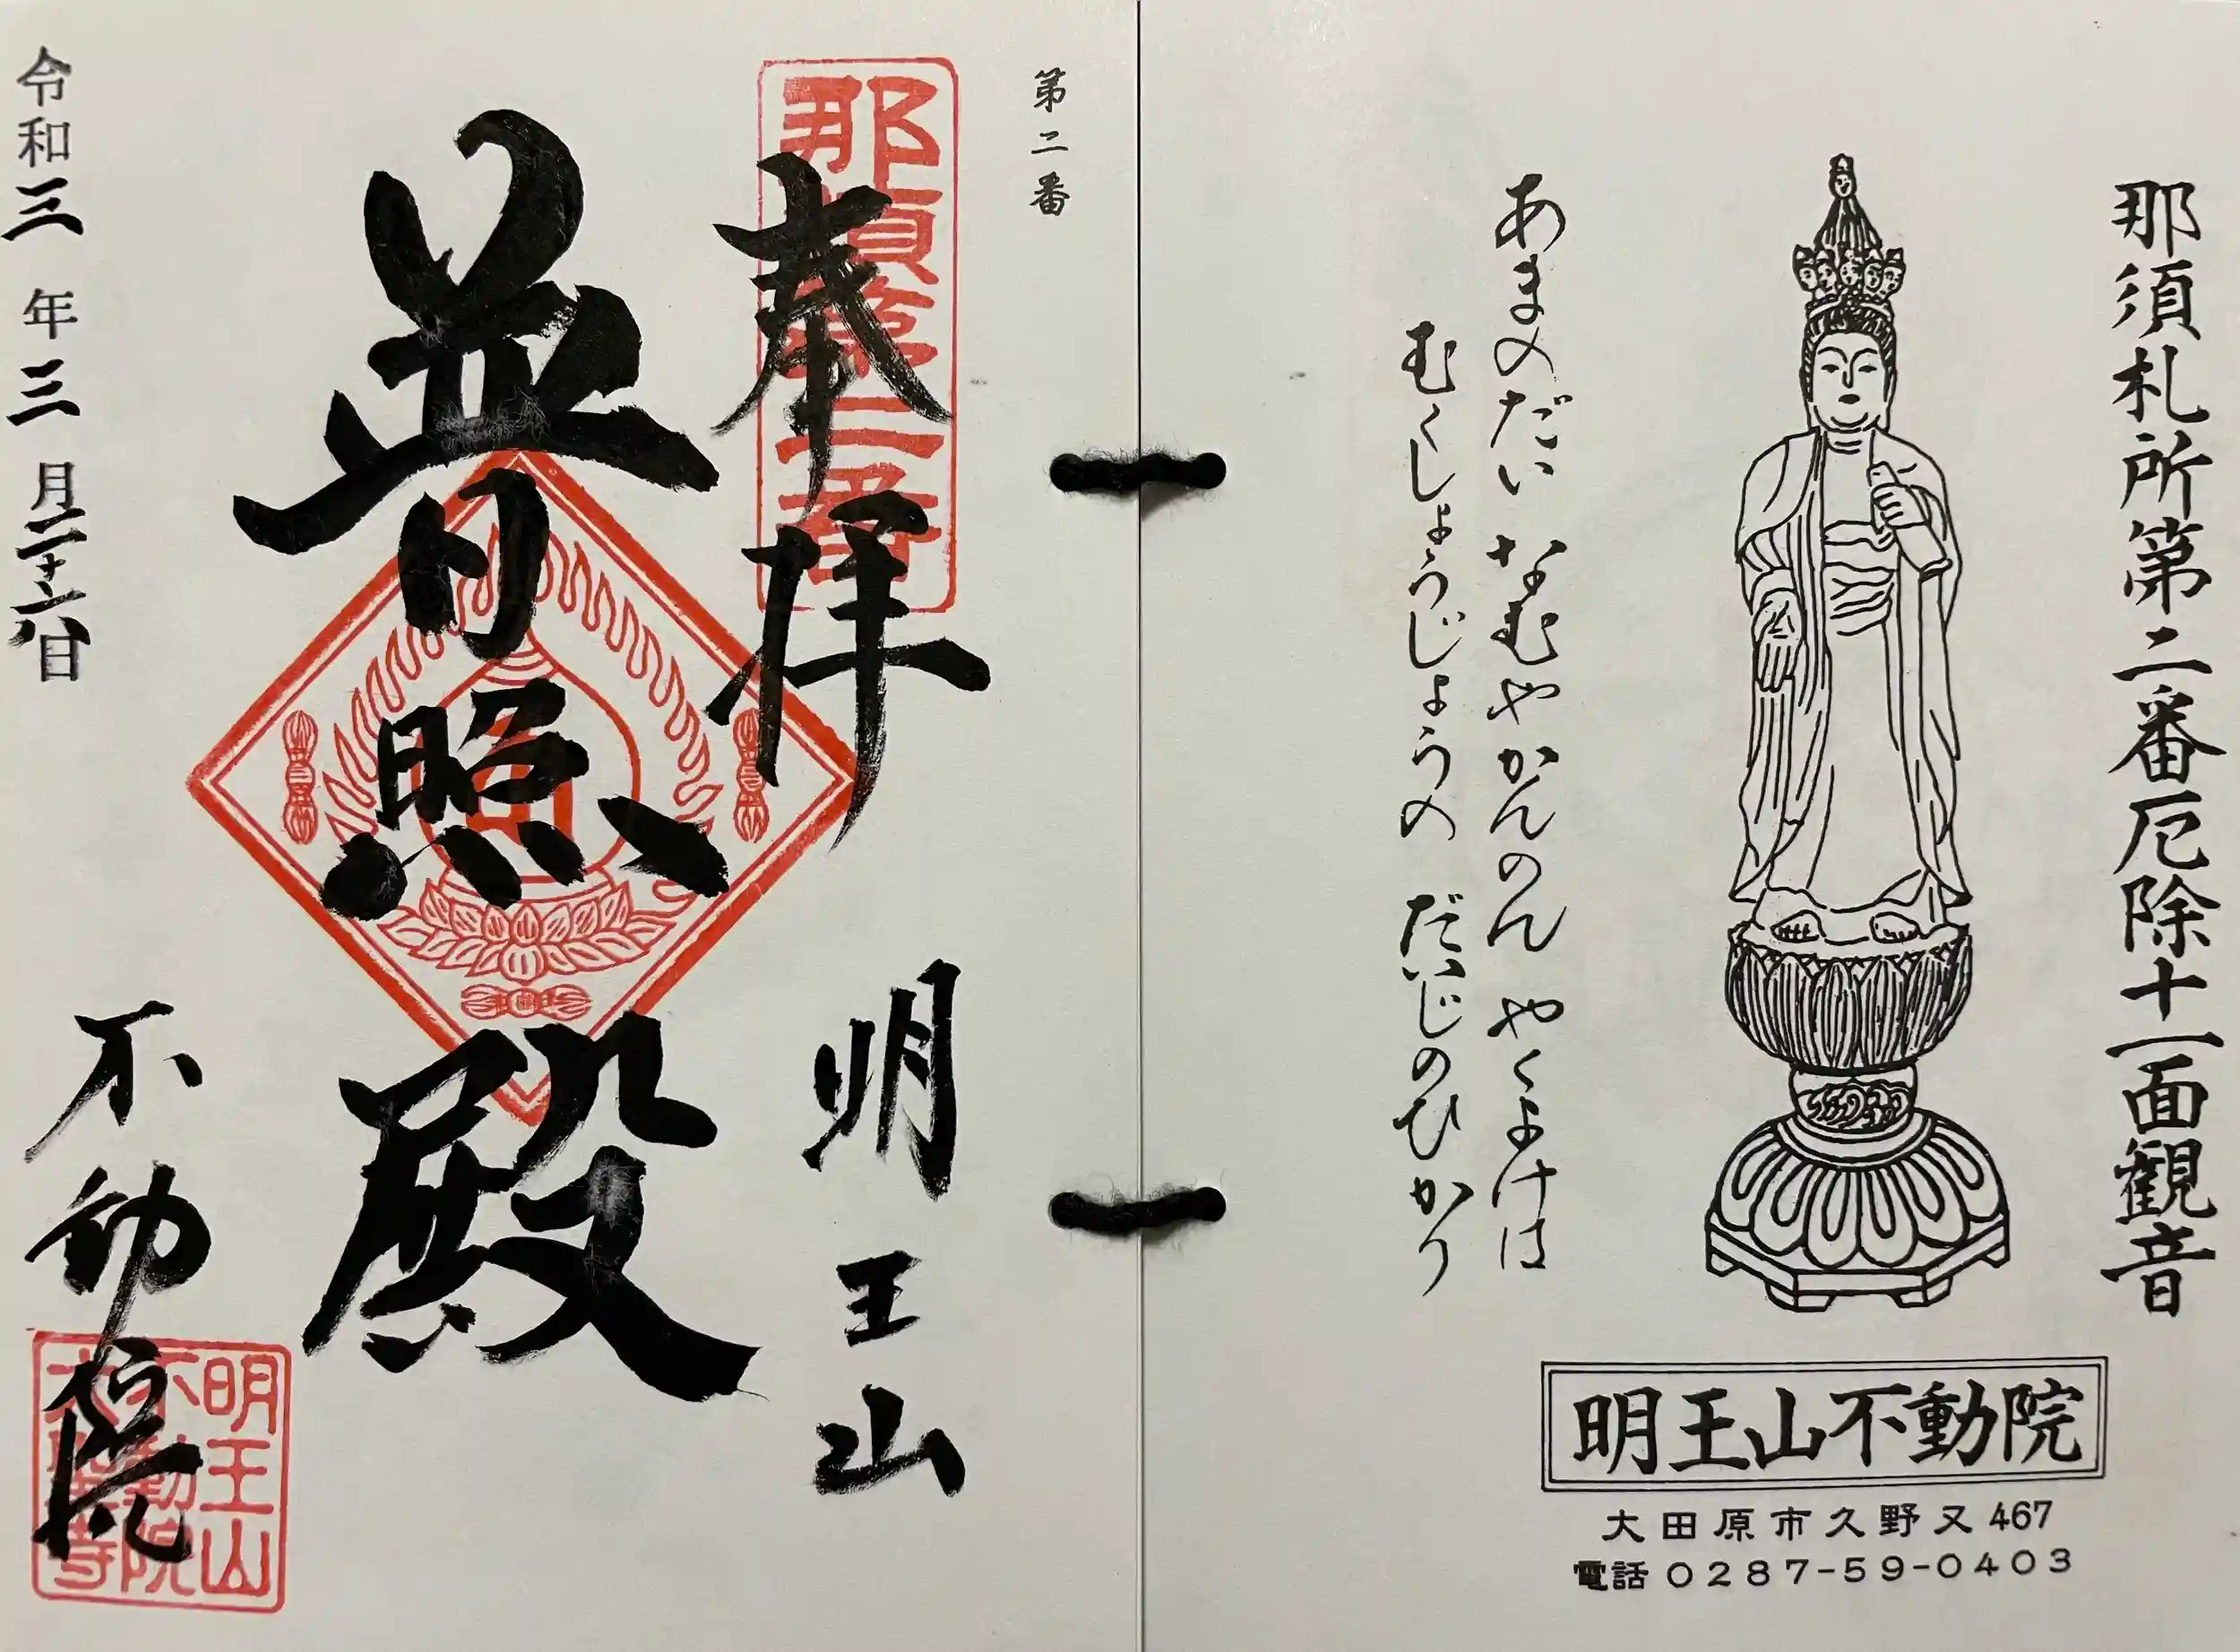 那須札所第二番厄除十一面観音
あまのだい なむやかんのん やくよけは
むくしょうじょうの だいじのひかり
明王山不動院
大田原市久野又467
電話0287-59-0403
第二番
那須第二番
奉拝
明王山
普照殿
令和三年三月二十六日
不動院
明王山
不動院